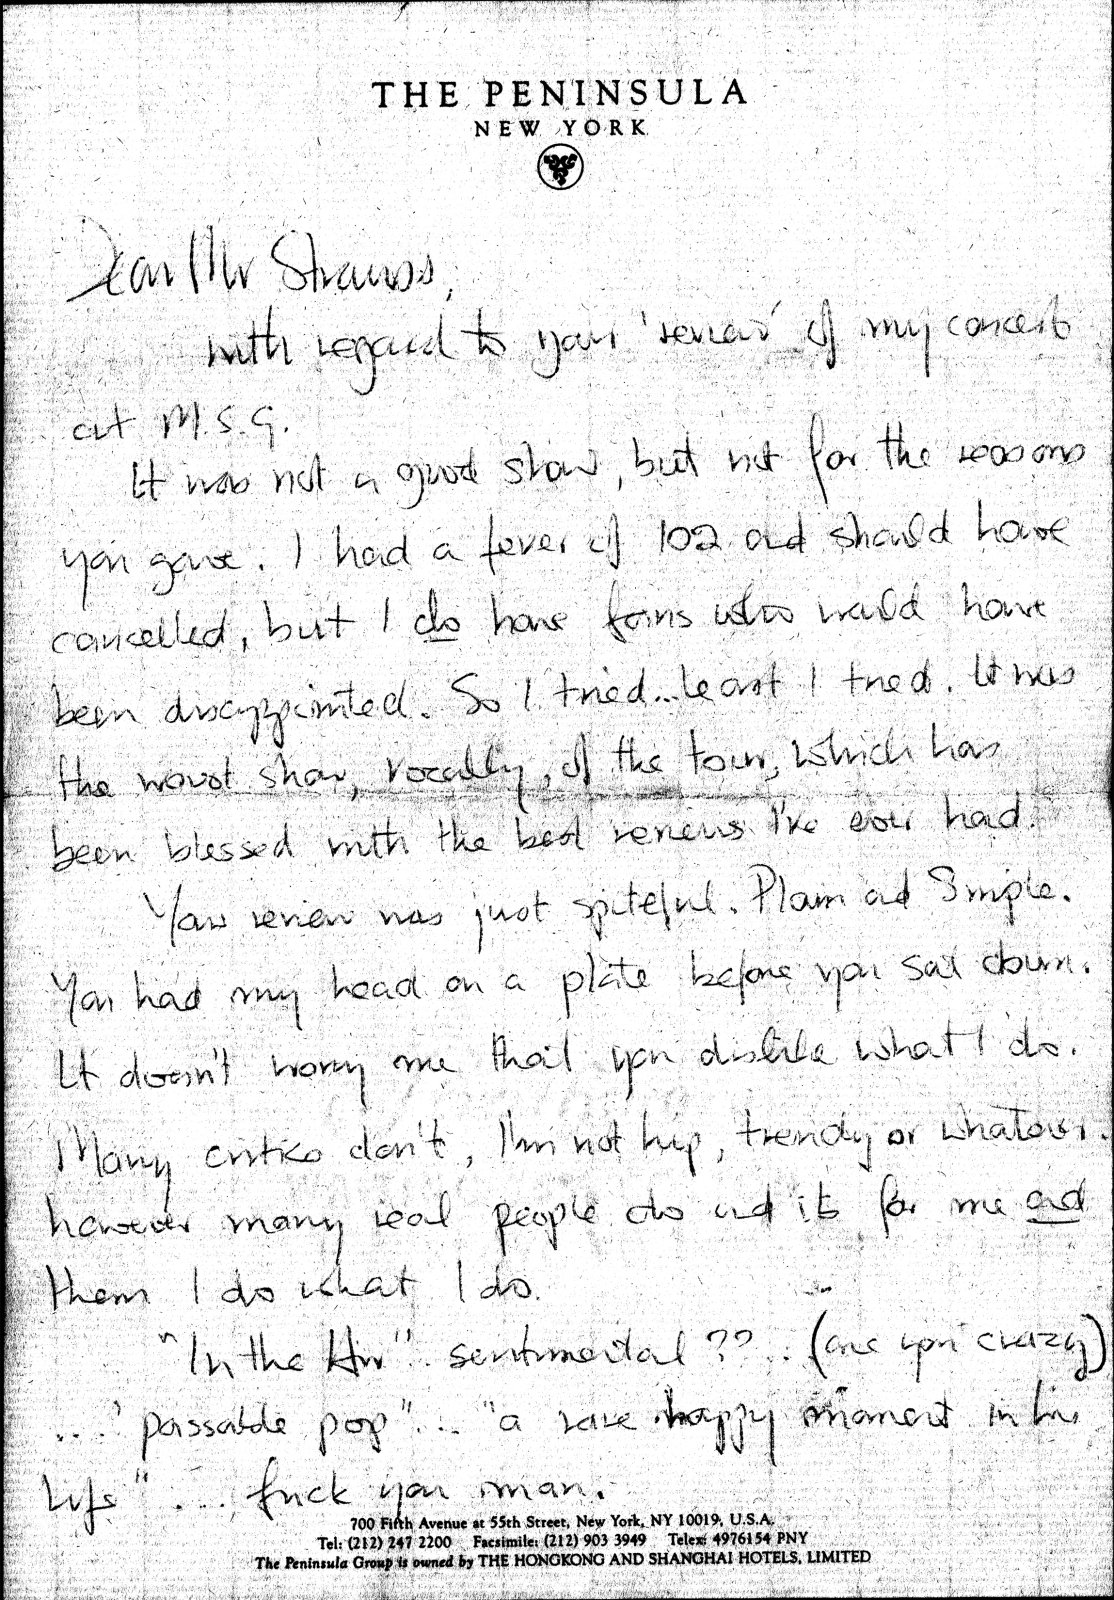 THE PENINSULA
NEW YORK
Dear Mr Strauss,
with regard to your 'review' of my concert
at M.S.G.
It was not a good show, but not for the reasons
you gave. I had a fever of 102 and should have
cancelled, but I do have fans who would have
been disappointed. So I tried...least I tried. It was
the worst show, vocally, of the tour, which has
been blessed with the best reviews I've ever had.
Your review was just spiteful. Plain and Simple.
You had my head on a plate before you sat down.
It doesn't worry me that you dislike what I do.
Many critics don't, I'm not hip, trendy or whatever.
however many real people do and its for me and
them I do what I do.
"In the Air".. sentimental ??.. (are you crazy)
...'passable pop"... "a rare happy moment in his
life" ... fuck you man.
700 Fifth Avenue at 55th Street, New York, NY 10019, U.S.A.
Tel: (212) 247 2200 Facsimile: (212) 903 3949 Telex: 4976154 PNY
The Peninsula Group is owned by THE HONGKONG AND SHANGHAI HOTELS, LIMITED